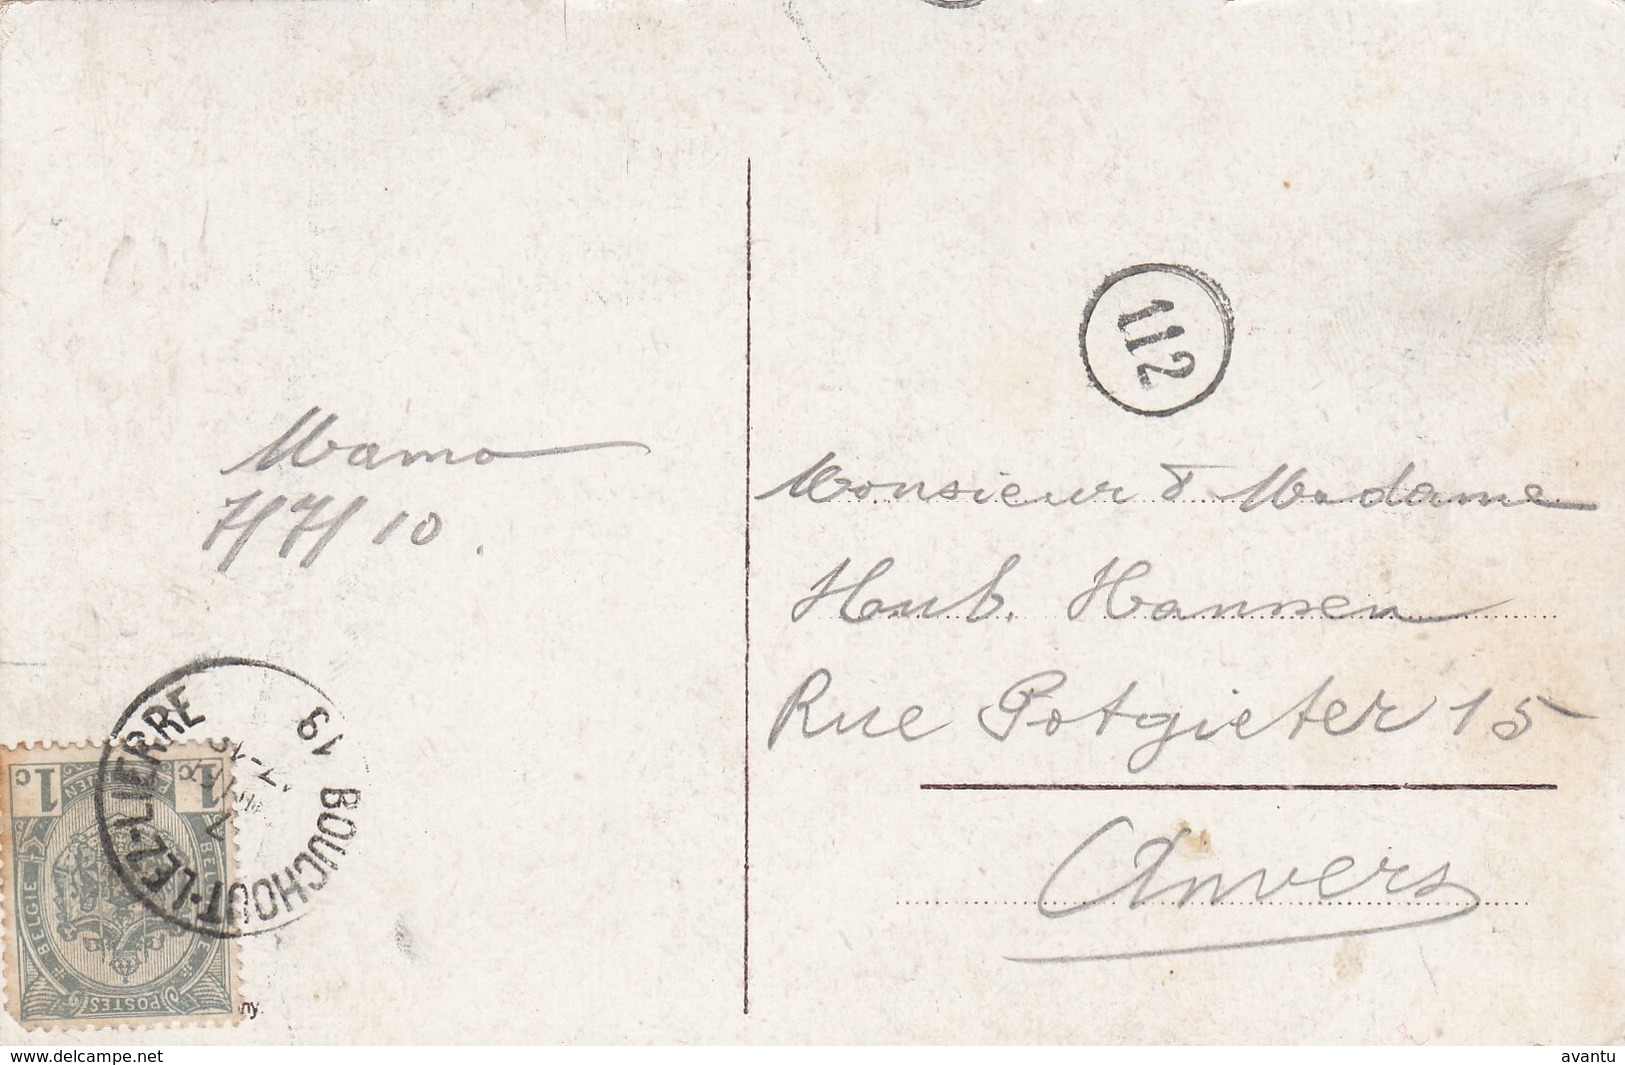 Mama
7/7/10.
112
Monsieur & Madame
Hub. Hannsen
Rue Potgieter 15
Anvers
BOUCHOUT-LEZ-LIERRE
19
1c 1c
BELGIE BELGIQUE
POSTES
ny.
www.delcampe.net
avantu